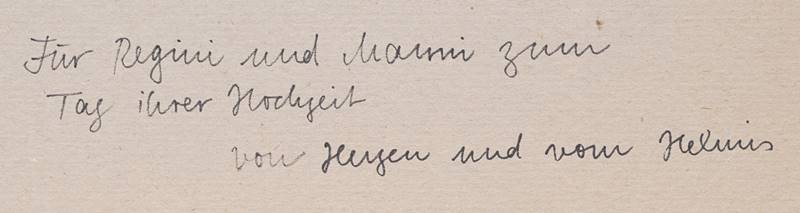 Für Regini und Manni zum
Tag ihrer Hochzeit
von Herzen und vom Helmis